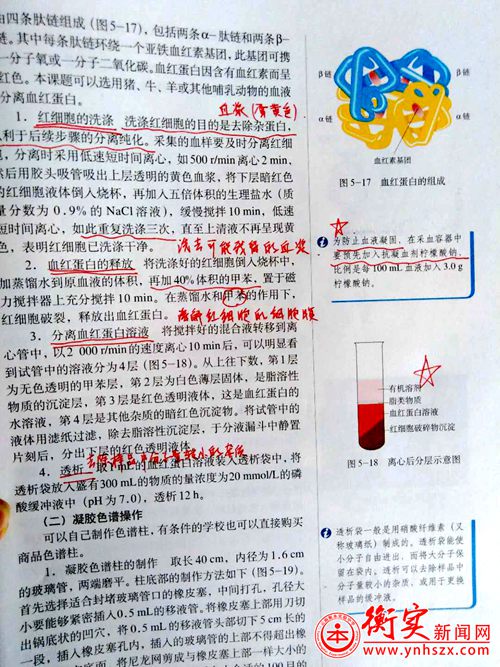 由四条肽链组成（图5-17），包括两条α-肽链和两条β-
链。其中每条肽链环绕一个亚铁血红素基团，此基团可携
一分子氧或一分子二氧化碳。血红蛋白因含有血红素而呈
红色。本课题可以选用猪、牛、羊或其他哺乳动物的血液
分离血红蛋白。
血浆（黄色）
1．红细胞的洗涤 洗涤红细胞的目的是去除杂蛋白，
利于后续步骤的分离纯化。采集的血样要及时分离红细
胞，分离时采用低速短时间离心，如500 r/min离心2 min，
然后用胶头吸管吸出上层透明的黄色血浆，将下层暗红色
的红细胞液体倒入烧杯，再加入五倍体积的生理盐水（质
量分数为0.9%的NaCl溶液），缓慢搅拌10 min，低速
短时间离心，如此重复洗涤三次，直至上清液不再呈现黄
色，表明红细胞已洗涤干净。
洗去可能残留的血浆
2．血红蛋白的释放 将洗涤好的红细胞倒入烧杯中，
加蒸馏水到原血液的体积，再加40%体积的甲苯，置于磁
力搅拌器上充分搅拌10 min。在蒸馏水和甲苯的作用下，
红细胞破裂，释放出血红蛋白。
溶解红细胞的细胞膜
3．分离血红蛋白溶液 将搅拌好的混合液转移到离
心管中，以2 000 r/min的速度离心10 min后，可以明显看
到试管中的溶液分为4层（图5-18）。从上往下数，第1层
为无色透明的甲苯层，第2层为白色薄层固体，是脂溶性
物质的沉淀层，第3层是红色透明液体，这是血红蛋白的
水溶液，第4层是其他杂质的暗红色沉淀物。将试管中的
液体用滤纸过滤，除去脂溶性沉淀层，于分液漏斗中静置
片刻后，分出下层的红色透明液体。
4．透析 取1 mL的血红蛋白溶液装入透析袋中，将
透析袋放入盛有300 mL的物质的量浓度为20 mmol/L的磷
酸缓冲液中（pH为7.0），透析12 h。
（二）凝胶色谱操作
可以自己制作色谱柱，有条件的学校也可以直接购买
商品色谱柱。
1．凝胶色谱柱的制作 取长40 cm，内径为1.6 cm
的玻璃管，两端磨平。柱底部的制作方法如下（图5-19）。
首先选择适合封堵玻璃管口的橡皮塞，中间打孔，孔径大
小要能够紧密插入0.5 mL的移液管。将橡皮塞上部用刀切
出锅底状的凹穴，将0.5 mL的移液管头部切下5 cm长的
一段，插入橡皮塞孔内，插入的玻璃管的上部不得超出橡
将尼龙网剪成与橡皮塞上部一样大小的
β链
β链
α链
α链
血红素基团
图5-17 血红蛋白的组成
为防止血液凝固，在采血容器中
要预先加入抗凝血剂柠檬酸钠，
比例是每100 mL血液加入3.0 g
柠檬酸钠。
有机溶剂
脂类物质
血红蛋白溶液
红细胞破碎物沉淀
图5-18 离心后分层示意图
透析袋一般是用硝酸纤维素（又
称玻璃纸）制成的。透析袋能使
小分子自由进出，而将大分子保
留在袋内。透析可以去除样品中
分子量较小的杂质，或用于更换
样品的缓冲液。
衡实新闻网
www.ynhszx.com